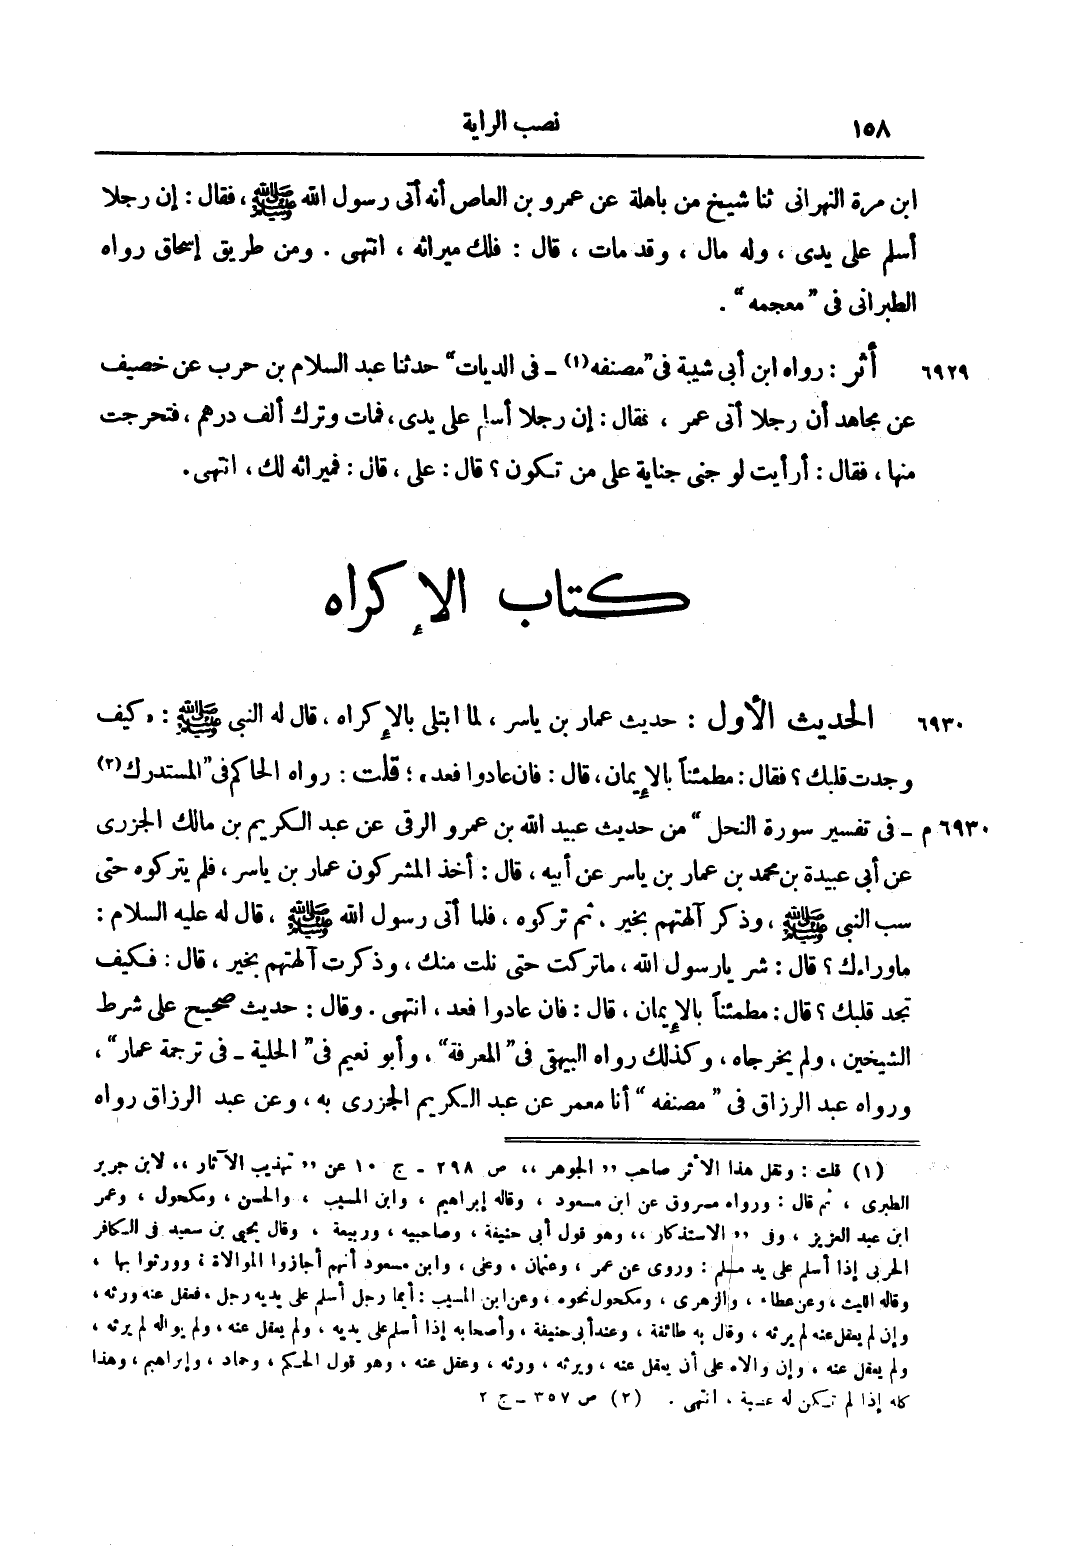 ١٥٨ نصب الراية
ابن مرة النهرانى ثنا شيخ من باهلة عن عمرو بن العاص أنه أتى رسول الله ﷺ ، فقال : إن رجلا
أسلم على يدى ، وله مال ، وقد مات ، قال : فلك ميراثه ، انتهى . ومن طريق إسحاق رواه
الطبرانى فى " معجمه " .
٦٩٢٩ أثر : رواه ابن أبى شيبة فى " مصنفه (١) ـ فى الديات " حدثنا عبد السلام بن حرب عن خصيف
عن مجاهد أن رجلا أتى عمر ، فقال : إن رجلا أسلم على يدى ، فمات وترك ألف درهم ، فتحرجت
منها ، فقال : أرأيت لو جنى جناية على من تكون ؟ قال : على ، قال : فميراثه لك ، انتهى .
كتاب الإكراه
٦٩٣٠ الحديث الأول : حديث عمار بن ياسر ، لما ابتلى بالإكراه ، قال له النبى ﷺ : « كيف
وجدت قلبك ؟ فقال : مطمئناً بالإيمان ، قال : فان عادوا فعد » ؛ قلت : رواه الحاكم فى " المستدرك (٢)
٦٩٣٠ م ـ فى تفسير سورة النحل " من حديث عبيد الله بن عمرو الرقى عن عبد الكريم بن مالك الجزرى
عن أبى عبيدة بن محمد بن عمار بن ياسر عن أبيه ، قال : أخذ المشركون عمار بن ياسر ، فلم يتركوه حتى
سب النبى ﷺ ، وذكر آلهتهم بخير ، ثم تركوه ، فلما أتى رسول الله ﷺ ، قال له عليه السلام :
ماوراءك ؟ قال : شر يارسول الله ، ماتركت حتى نلت منك ، وذكرت آلهتهم بخير ، قال : فكيف
تجد قلبك ؟ قال : مطمئناً بالإيمان ، قال : فان عادوا فعد ، انتهى . وقال : حديث صحيح على شرط
الشيخين ، ولم يخرجاه ، وكذلك رواه البيهقى فى " المعرفة " ، وأبو نعيم فى " الحلية ـ فى ترجمة عمار " ،
ورواه عبد الرزاق فى " مصنفه " أنا معمر عن عبد الكريم الجزرى به ، وعن عبد الرزاق رواه
(١) قلت : ونقل هذا الأثر صاحب ,, الجوهر ،، ص ٢٩٨ ـ ج ١٠ عن ,, تهذيب الآثار ،، لابن جرير
الطبرى ، ثم قال : ورواه مسروق عن ابن مسعود ، وقاله إبراهيم ، وابن المسيب ، والحسن ، ومكحول ، وعمر
ابن عبد العزيز ، وفى ,, الاستذكار ،، وهو قول أبى حنيفة ، وصاحبيه ، وربيعة ، وقال يحيى بن سعيد فى الكافر
الحربى إذا أسلم على يد مسلم : وروى عن عمر ، وعثمان ، وعلى ، وابن مسعود أنهم أجازوا الموالاة ، وورثوا بها ،
وقاله الليث ، وعن عطاء ، والزهرى ، ومكحول نحوه ، وعن ابن المسيب : أيما رجل أسلم على يديه رجل ، فعقل عنه ورثه ،
وإن لم يعقل عنه لم يرثه ، وقال به طائفة ، وعند أبى حنيفة ، وأصحابه إذا أسلم على يديه ، ولم يعقل عنه ، ولم يواله لم يرثه ،
ولم يعقل عنه ، وإن والاه على أن يعقل عنه ، ويرثه ، ورثه ، وعقل عنه ، وهو قول الحكم ، وحماد ، وإبراهيم ، وهذا
كله إذا لم تكن له عصبة ، انتهى . (٢) ص ٣٥٧ ـ ج ٢